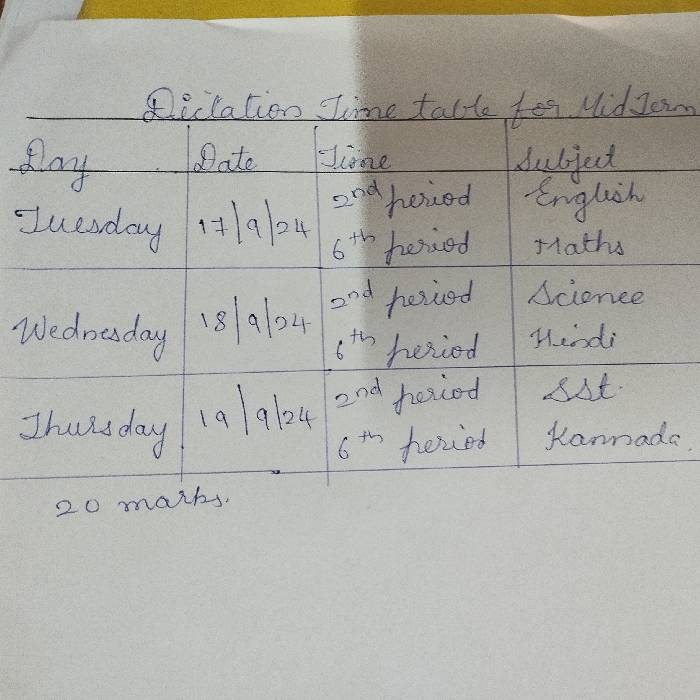 Dictation Time table for MidTerm
Day Date Time Subject
Tuesday 17/9/24 2nd period English
6th period Maths
Wednesday 18/9/24 2nd period Science
6th period Hindi
Thursday 19/9/24 2nd period SSt.
6th period Kannada.
20 marks.